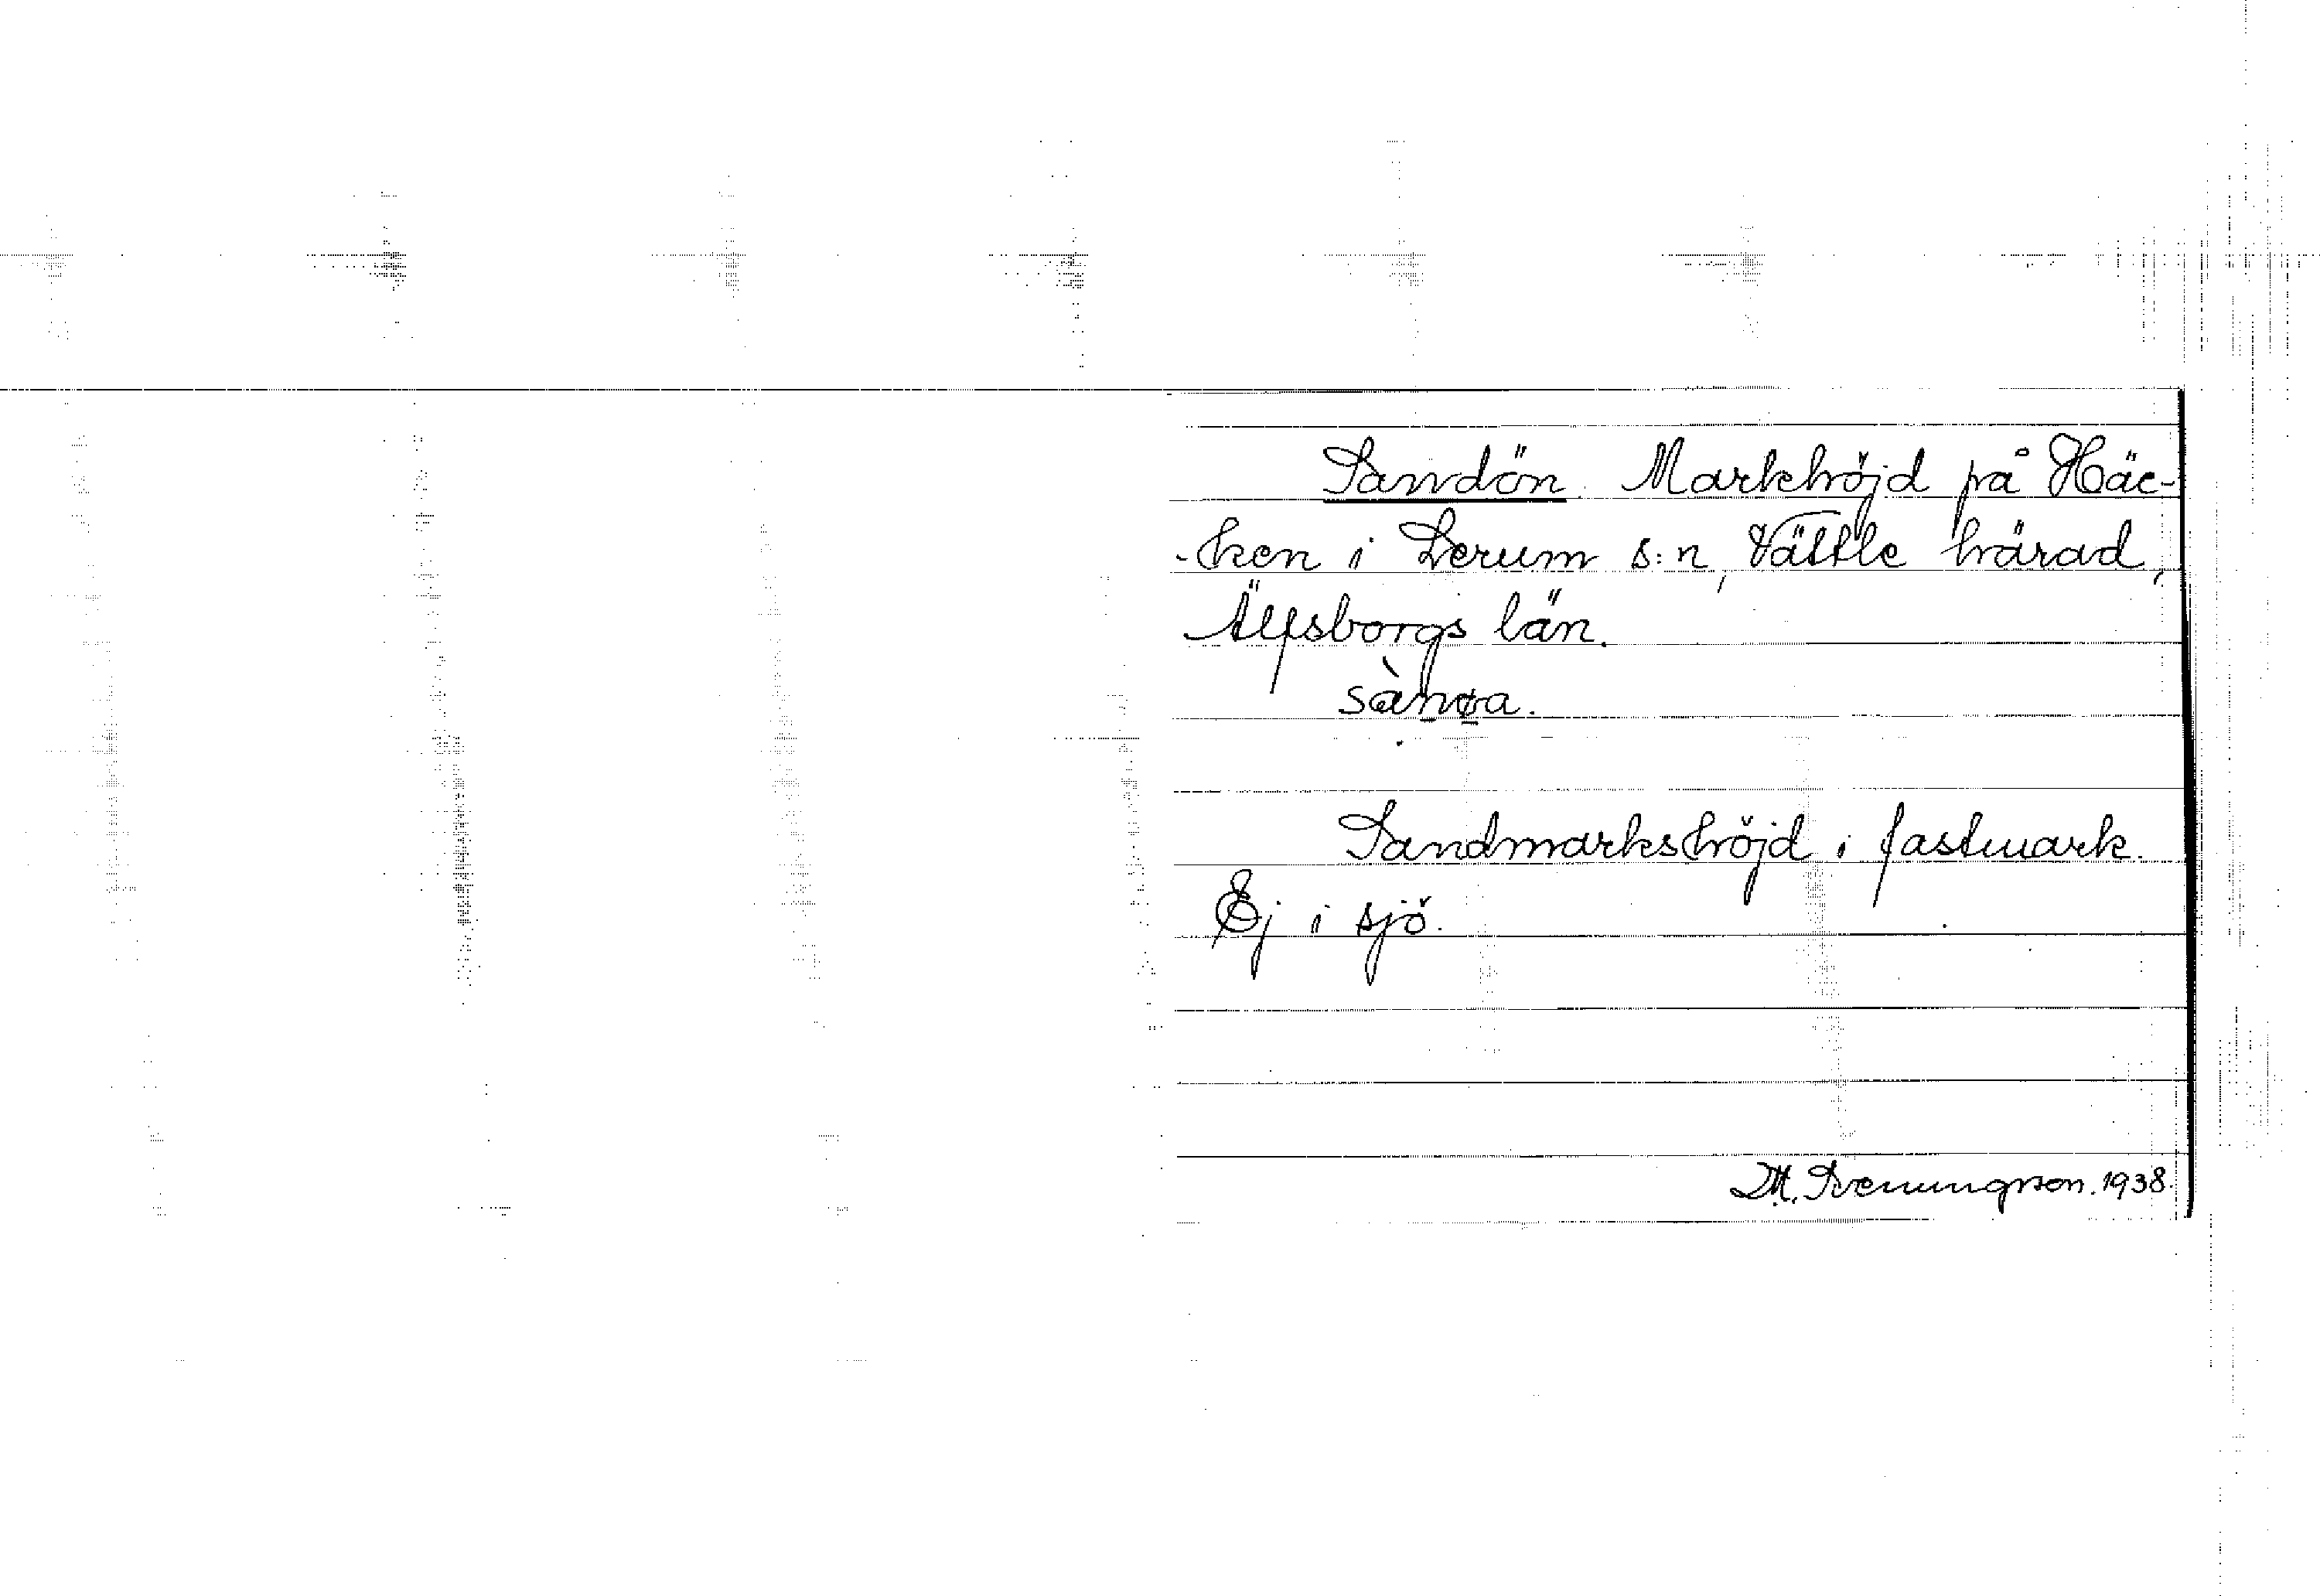 Sandön. Markhöjd på Häc-
-ken i Lerum s:n, Vättle härad,
Älfsborgs län.
Sandmarkshöjd i fastmark.
Ej i sjö.
M. Svenungsson. 1938.